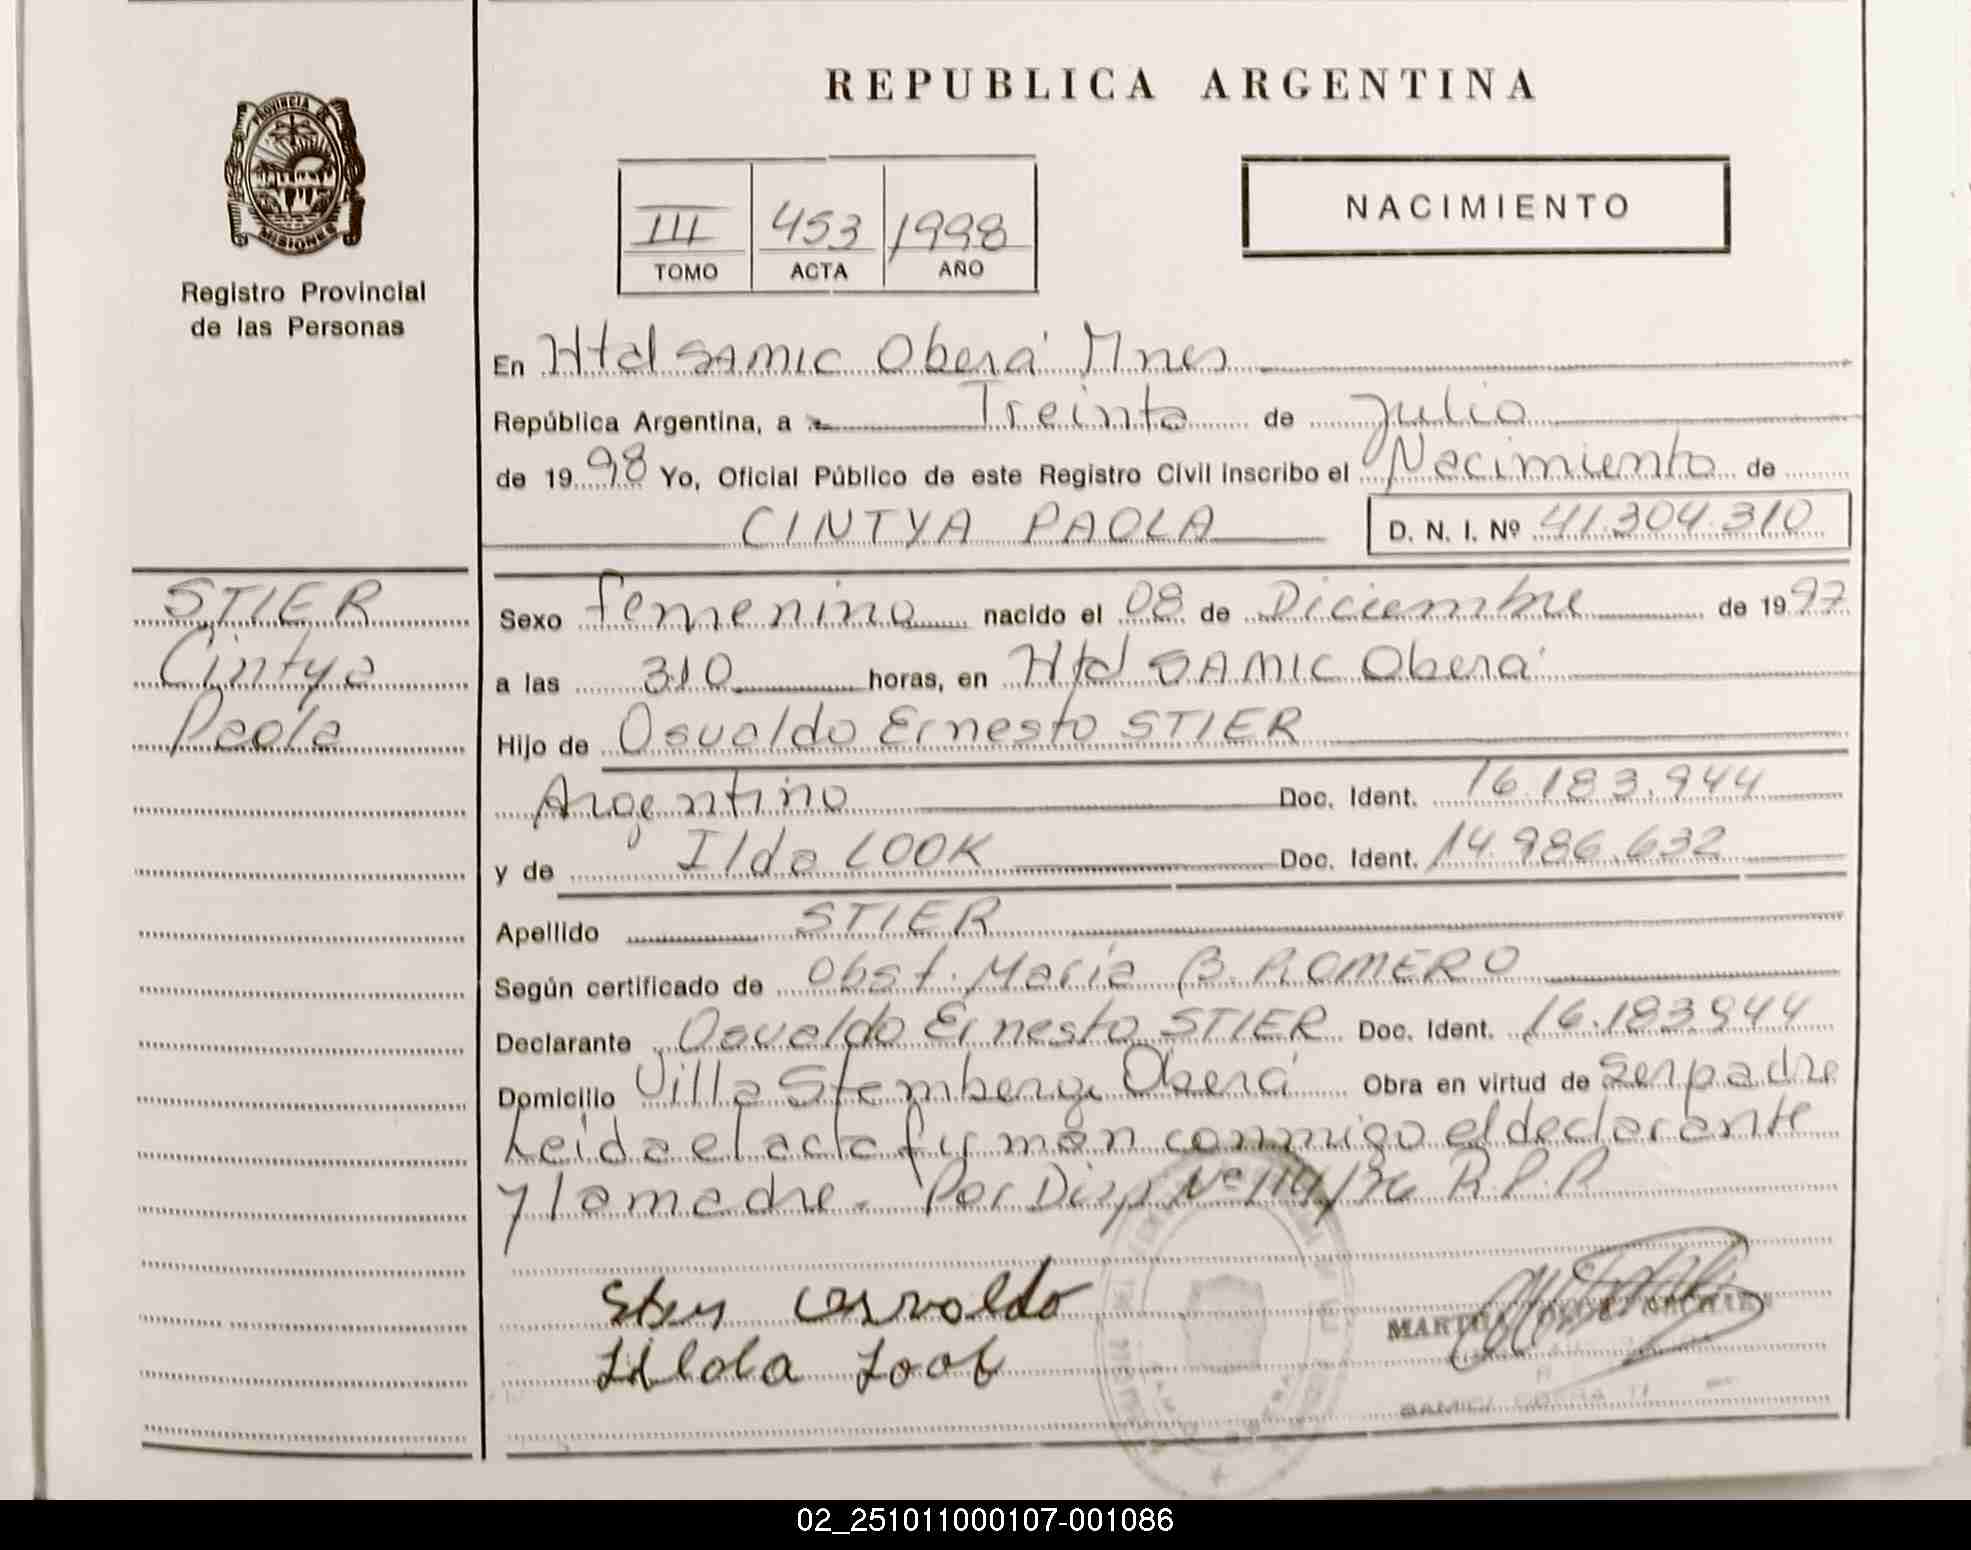 REPUBLICA ARGENTINA
PROVINCIA DE
MISIONES
Registro Provincial
de las Personas
III 453 1998
TOMO ACTA AÑO
NACIMIENTO
En Htal SAMIC Oberá Mnes
República Argentina, a Treinta de Julio
de 1998 Yo, Oficial Público de este Registro Civil inscribo el Nacimiento de
CINTYA PAOLA D. N. I. Nº 41.304.310
STIER
Cintya
Paola
Sexo femenino nacido el 08 de Diciembre de 1997
a las 310 horas, en Htal SAMIC Oberá
Hijo de Osvaldo Ernesto STIER
Argentino Doc. Ident. 16.183.944
y de Ilda LOOK Doc. Ident. 14.986.632
Apellido STIER
Según certificado de Obst. María B. ROMERO
Declarante Osvaldo Ernesto STIER Doc. Ident. 16.183.944
Domicilio Villa Stemberg Oberá Obra en virtud de ser padre
Leida el acta firman conmigo el declarante
y la madre. Por Disp Nº 114/96 R.P.P
Stier Osvaldo
Ilda Look
MARTHA
SAMIC
02_251011000107-001086